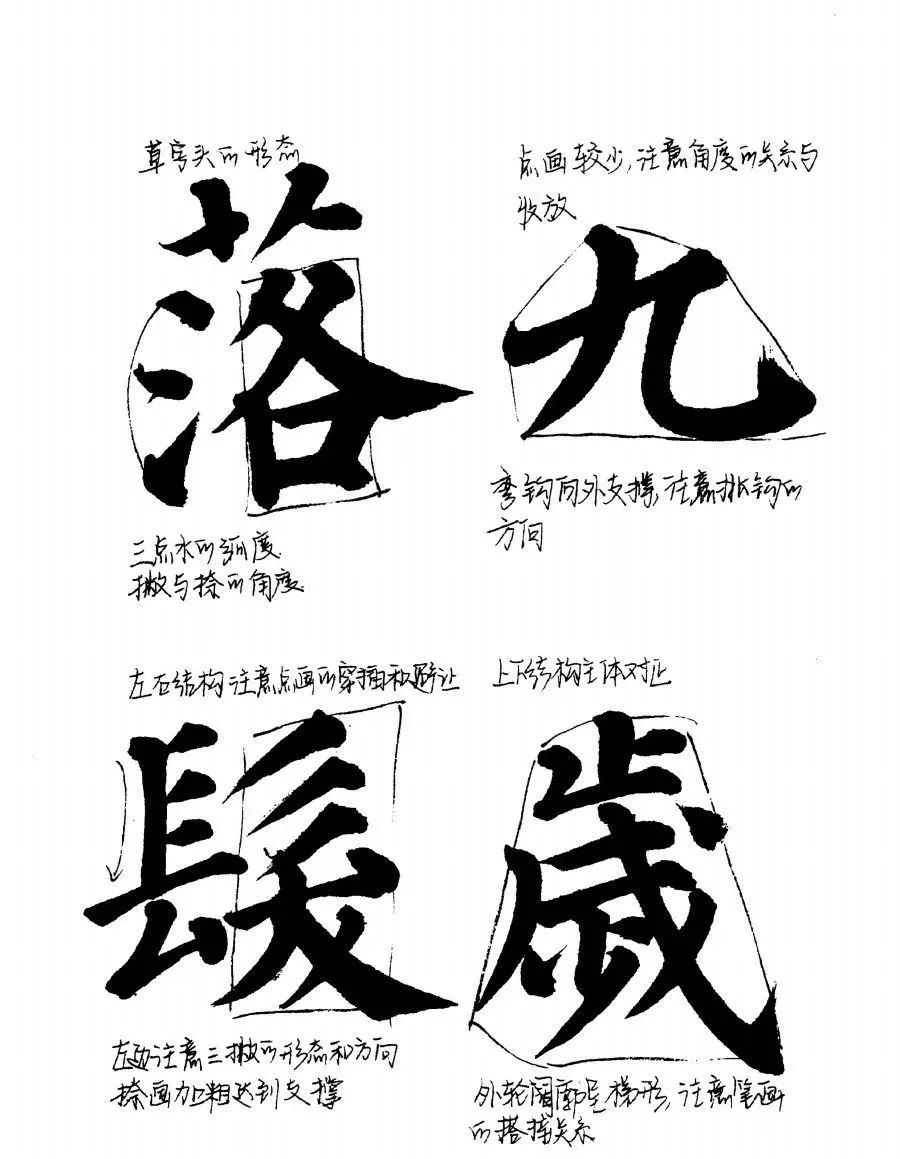 草字头的形态
落
三点水的弧度
撇与捺的角度
点画较少,注意角度的关系与
收放
九
弯钩向外支撑,注意挑钩的
方向
左右结构注意点画的穿插和避让
髮
左边注意三撇的形态和方向
捺画加粗达到支撑
上下结构主体对正
歲
外轮阔廓呈梯形,注意笔画
的搭接关系